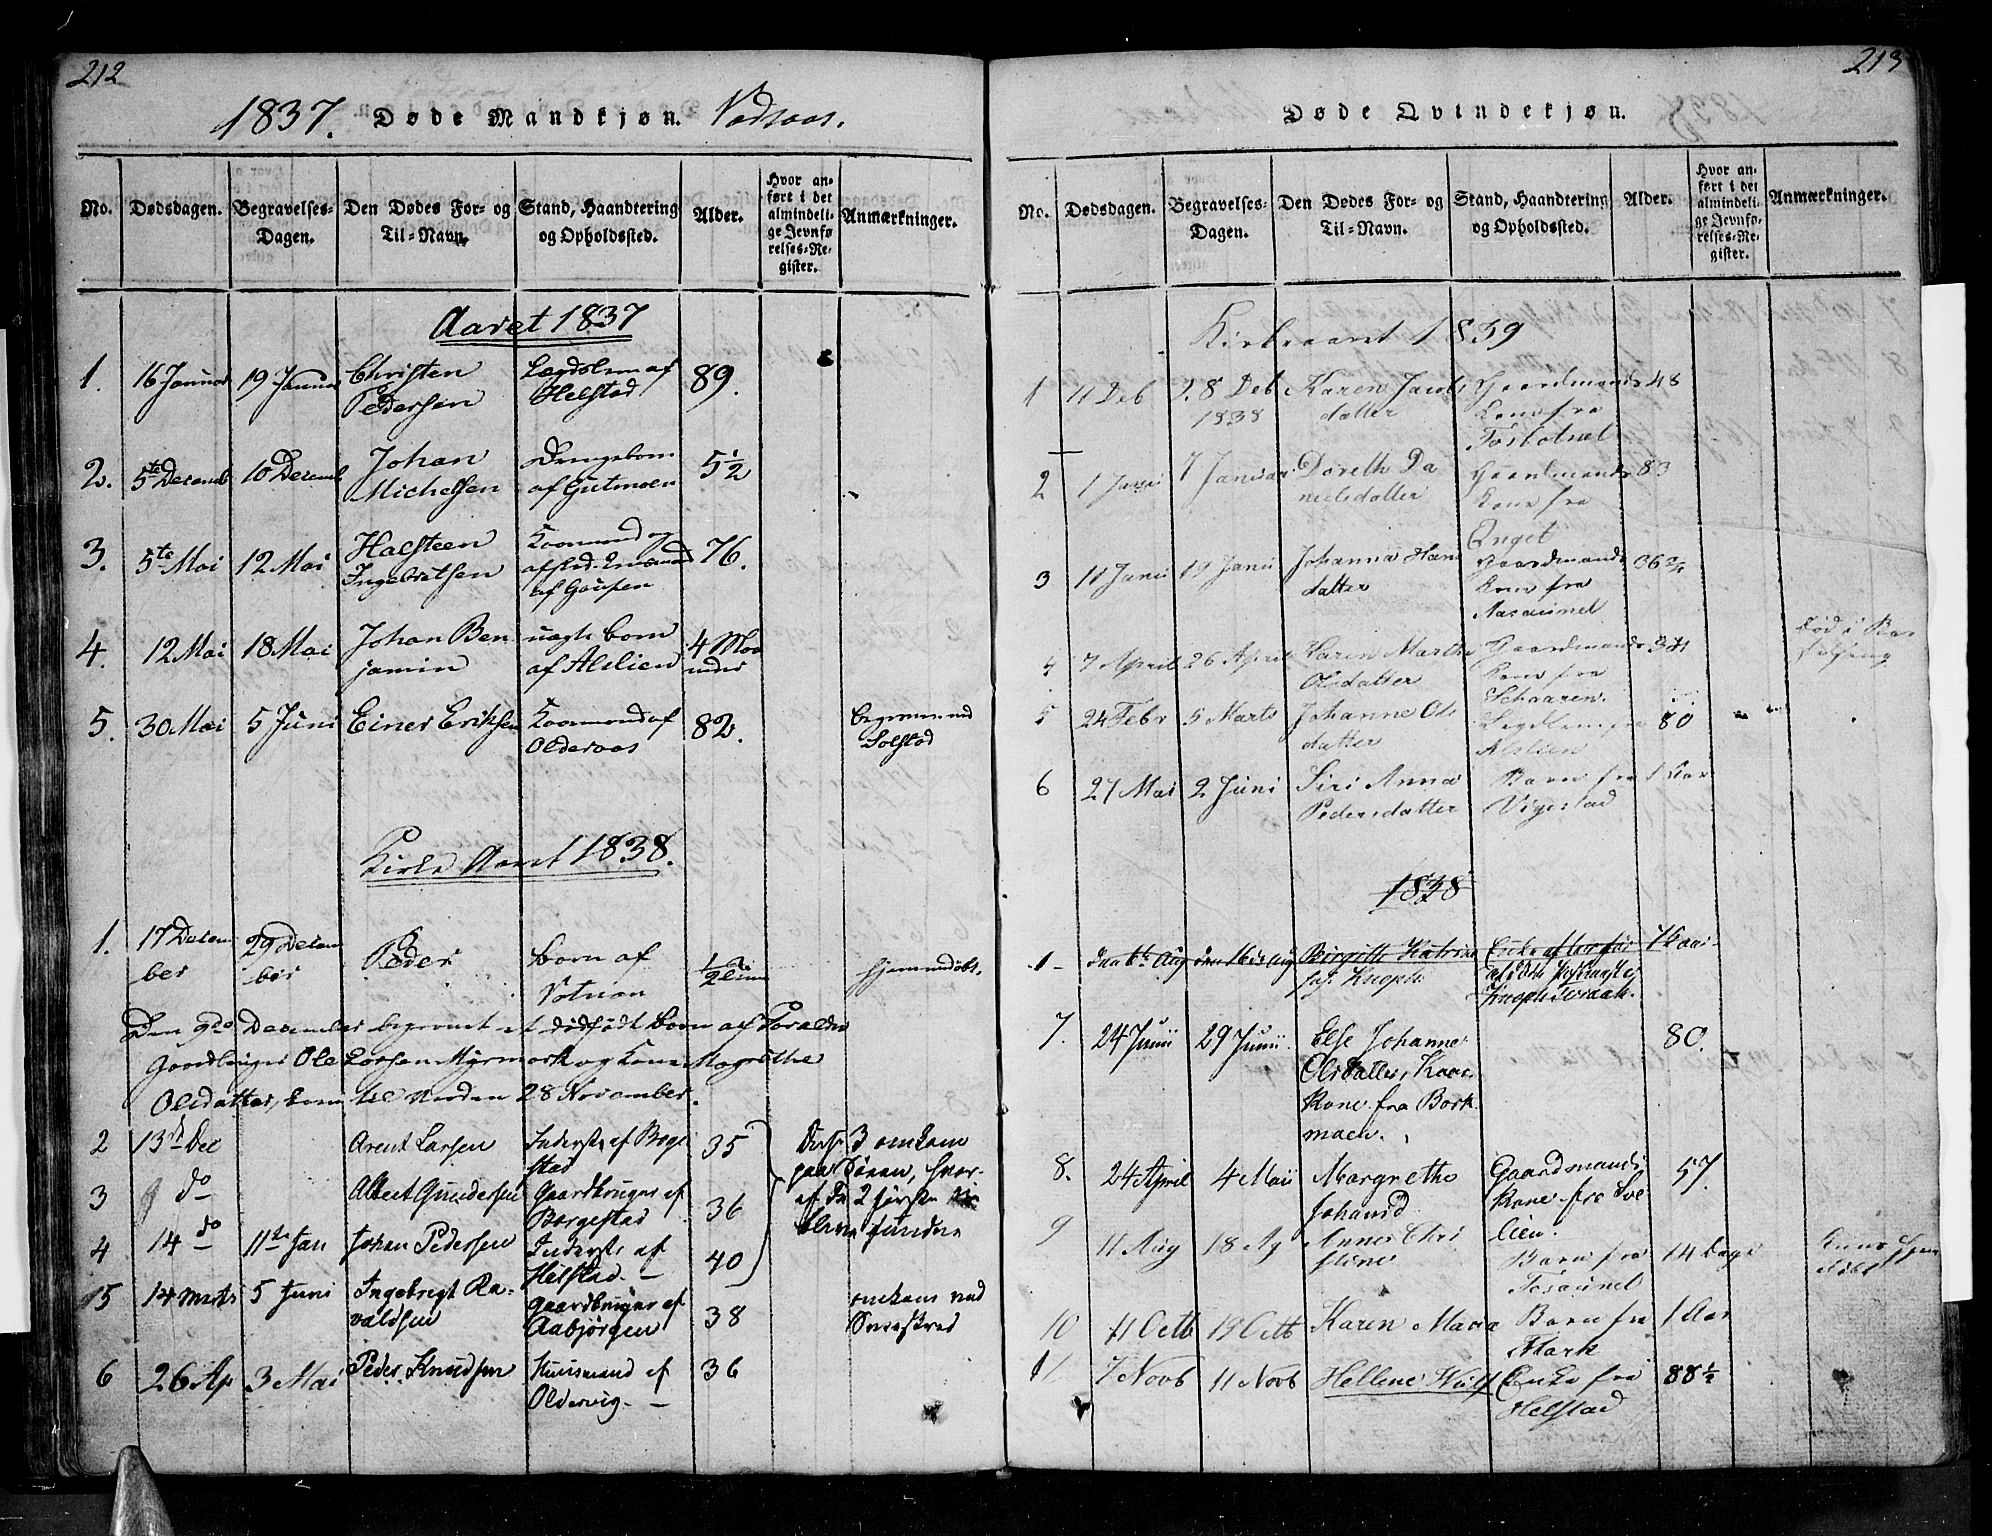 212
1837. Døde Mandkjøn. Vadsaas.
No. Dødsdagen. Begravelses-Dagen. Den Dødes For- og Til-Navn. Stand, Haandtering og Opholdssted. Alder. Hvor anført i det almindelige Jevnførelses-Register. Anmærkninger.
Aaret 1837
1. 16 Januar 19 Januar Christen Pedersen Lægdslem af Helstad 89.
2. 5te Decemb 10 Decemb Johan Michelsen Drengebarn af Gutmoen 5 1/2
3. 5te Mai 12 Mai Halsteen Ingebretsen Kaarmand og af Gaupen 76.
4. 12 Mai 18 Mai Johan Benjamin uægte barn af Alslien 4 Maaneder
5. 30 Mai 5 Juni Einer Eriksen Kaarmand af Olderaas 82. begraven ved Solstad
Kirke Aaret 1838.
1. 17 December 29 December Peder barn af 1/2 Time hjemmedøbt.
Den 9de December begravet et dødfødt barn af Forældre
Gaardbruger Ole Larsen Myrmark og Kone Magrethe
Olsdatter, kom til Verden 28 November.
2 13de Dec Arent Larsen Inderst af Borgestad 35
3 do Albert Gundersen Gaardbruger af Borgestad 36
4 14 do 11te Jan Johan Pedersen Inderst af Helstad. 40
Disse 3 omkom paa Søen, hvoraf de 2 første bleve fundne
5 14 Marts 5 Juni Ingebregt Ravaldsen Gaardbruger af Aabjørgen 38 omkom ved
6 26 Ap 3 Mai Peder Knudsen Huusmand af Oldervig. 36
213
Døde Qvindekjøn.
No. Dødsdagen. Begravelses-Dagen. Den Dødes For- og Til-Navn. Stand, Haandtering og Opholdssted. Alder. Hvor anført i det almindelige Jevnførelses-Register. Anmærkninger.
Kirkeaaret 1839
1 11 Deb 28 Deb 1838 Karen Jacobsdatter Gaardmands Kone fra 48
2 1 Janu 7 Januar Doreth Danielsdatter Gaardmands Kone fra Enget 83
3 11 Janu 19 Janu Johanna Hansdatter Gaardmands Kone fra
4 7 April 26 April Karen Marthe Olsdatter Gaardmands Kone fra Schaaren. død i
5 24 Febr 5 Marts Johanne Olsdatter Legdlem fra Alslien 80
6 27 Mai 2 Juni Siri Anna Pedersdatter Barn fra Vigestad 1 Aar
1838
1 den 6te Aug den 16de Aug Birgitte Katrina Knoph. Enke efter
7. 24 Junii 29 Junii Else Johanne Olsdatter, Kaarkone fra Borkmaen. 80.
8. 24 April 4 Maii Margrethe Johansd Gaardmands Kone fra Svelien. 57.
9 11 Aug 18 Ag Anne Christine Barn fra 14 Dage
10 11 Octb 19 Octb Karen Maria Barn fra Mark 1 Aar
11 7 Novb 11 Novb Hellene Wulf Enke fra Helstad 88 1/2